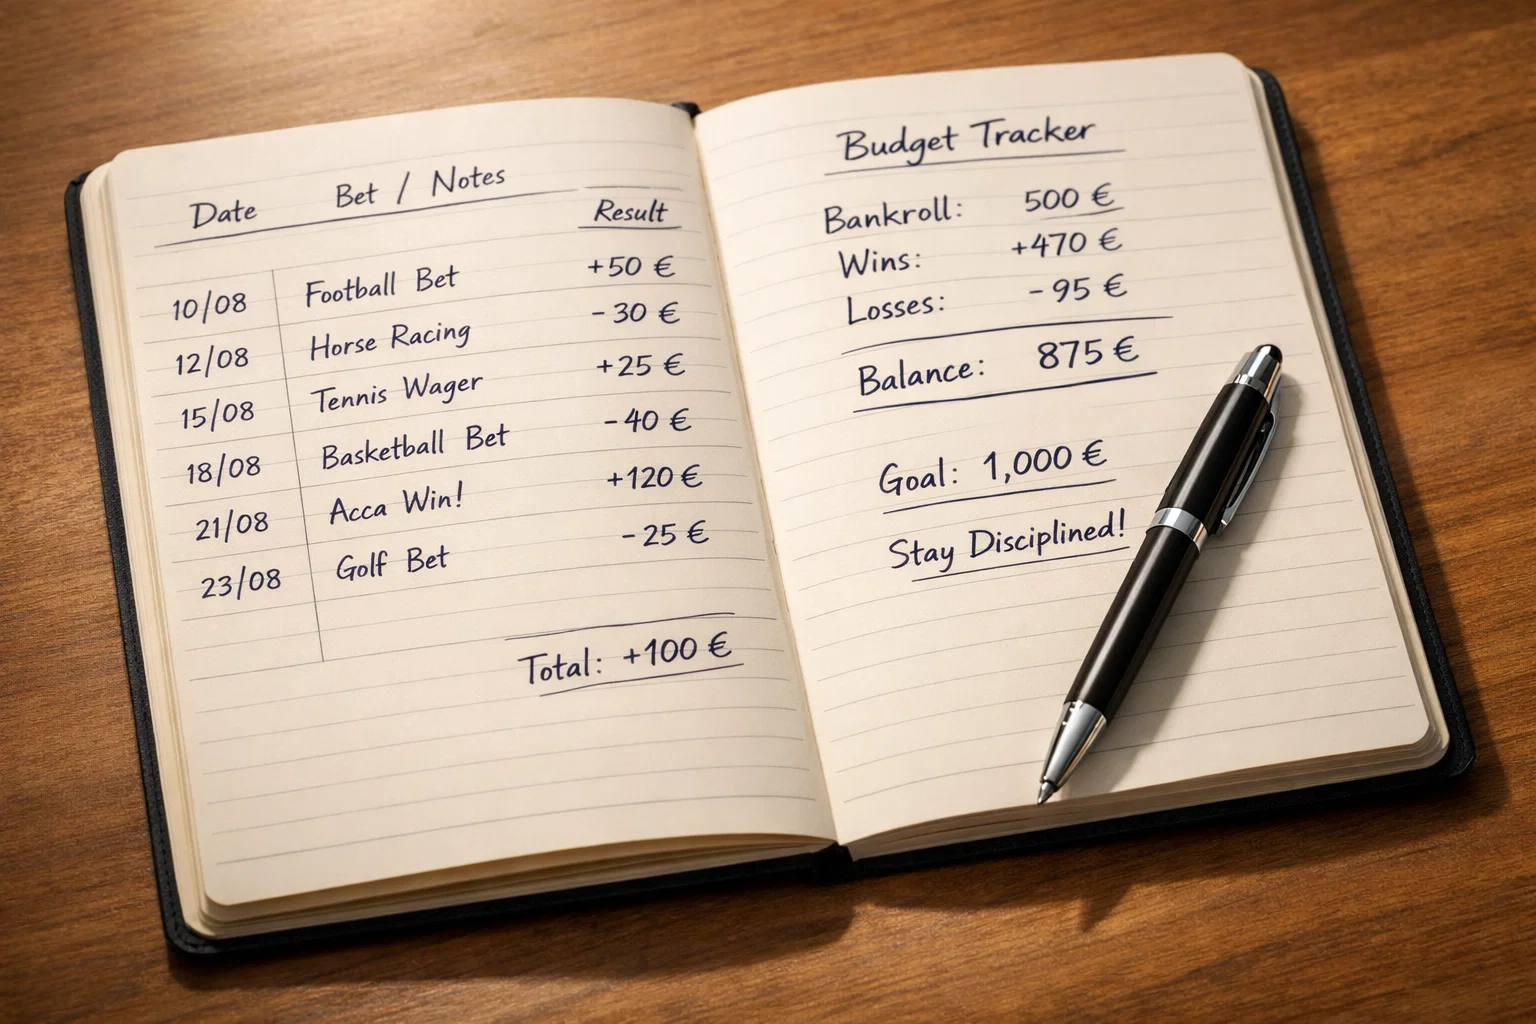 Date Bet / Notes Result
10/08 Football Bet +50 €
12/08 Horse Racing - 30 €
15/08 Tennis Wager +25 €
18/08 Basketball Bet - 40 €
21/08 Acca Win! +120 €
23/08 Golf Bet - 25 €
Total: +100 €
Budget Tracker
Bankroll: 500 €
Wins: +470 €
Losses: - 95 €
Balance: 875 €
Goal: 1,000 €
Stay Disciplined!